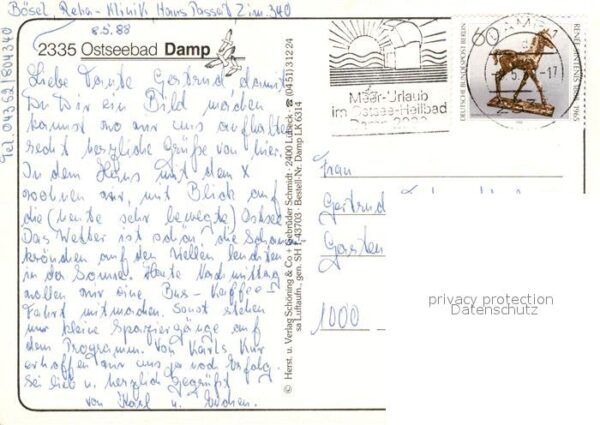 Bösel, Reha-Klinik Haus Passat Zim. 340
Tel. 04352/804340
8.5.88
2335 Ostseebad Damp
Liebe Tante Gertrud damit
Du Dir ein Bild machen
kannst wo wir uns aufhalten
recht herzliche Grüße von hier.
In dem Haus mit dem X
wohnen wir, mit Blick auf
die (heute sehr bewegte) Ostsee.
Das Wetter ist schön, die Schaum-
krönchen auf den Wellen leuchten
in der Sonne. Heute Nachmittag
wollen wir eine Bus-Kaffee-
Fahrt mitmachen. Sonst stehen
nur kleine Spaziergänge auf
dem Programm. Von Karls Kur
erhoffen wir uns ja noch Erfolg.
Sei lieb u. herzlich gegrüßt
von Karl u.
© Herst. u. Verlag Schöning & Co + Gebrüder Schmidt · 2400 Lübeck · ☎ (0451) 31224
sa Luftaufn., gen. SH f. 43703 · Bestell-Nr. Damp LK 6314
Meer-Urlaub
im Ostsee-Heilbad
Damp 2000
60
DEUTSCHE BUNDESPOST BERLIN
RENEE SINTENIS 1888-1965
Frau
Gertrud
1000
privacy protection
Datenschutz